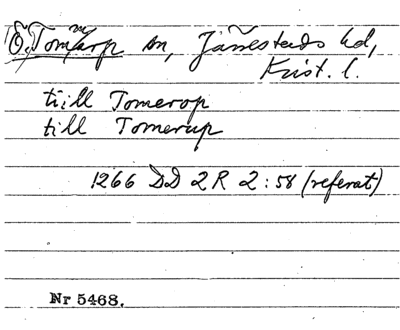 Ö. Tommarp sn, Järrestads hd,
Krist. l.
till Tomerop
till Tomerup
1266 DD 2R 2:58 (referat)
Nr 5468.